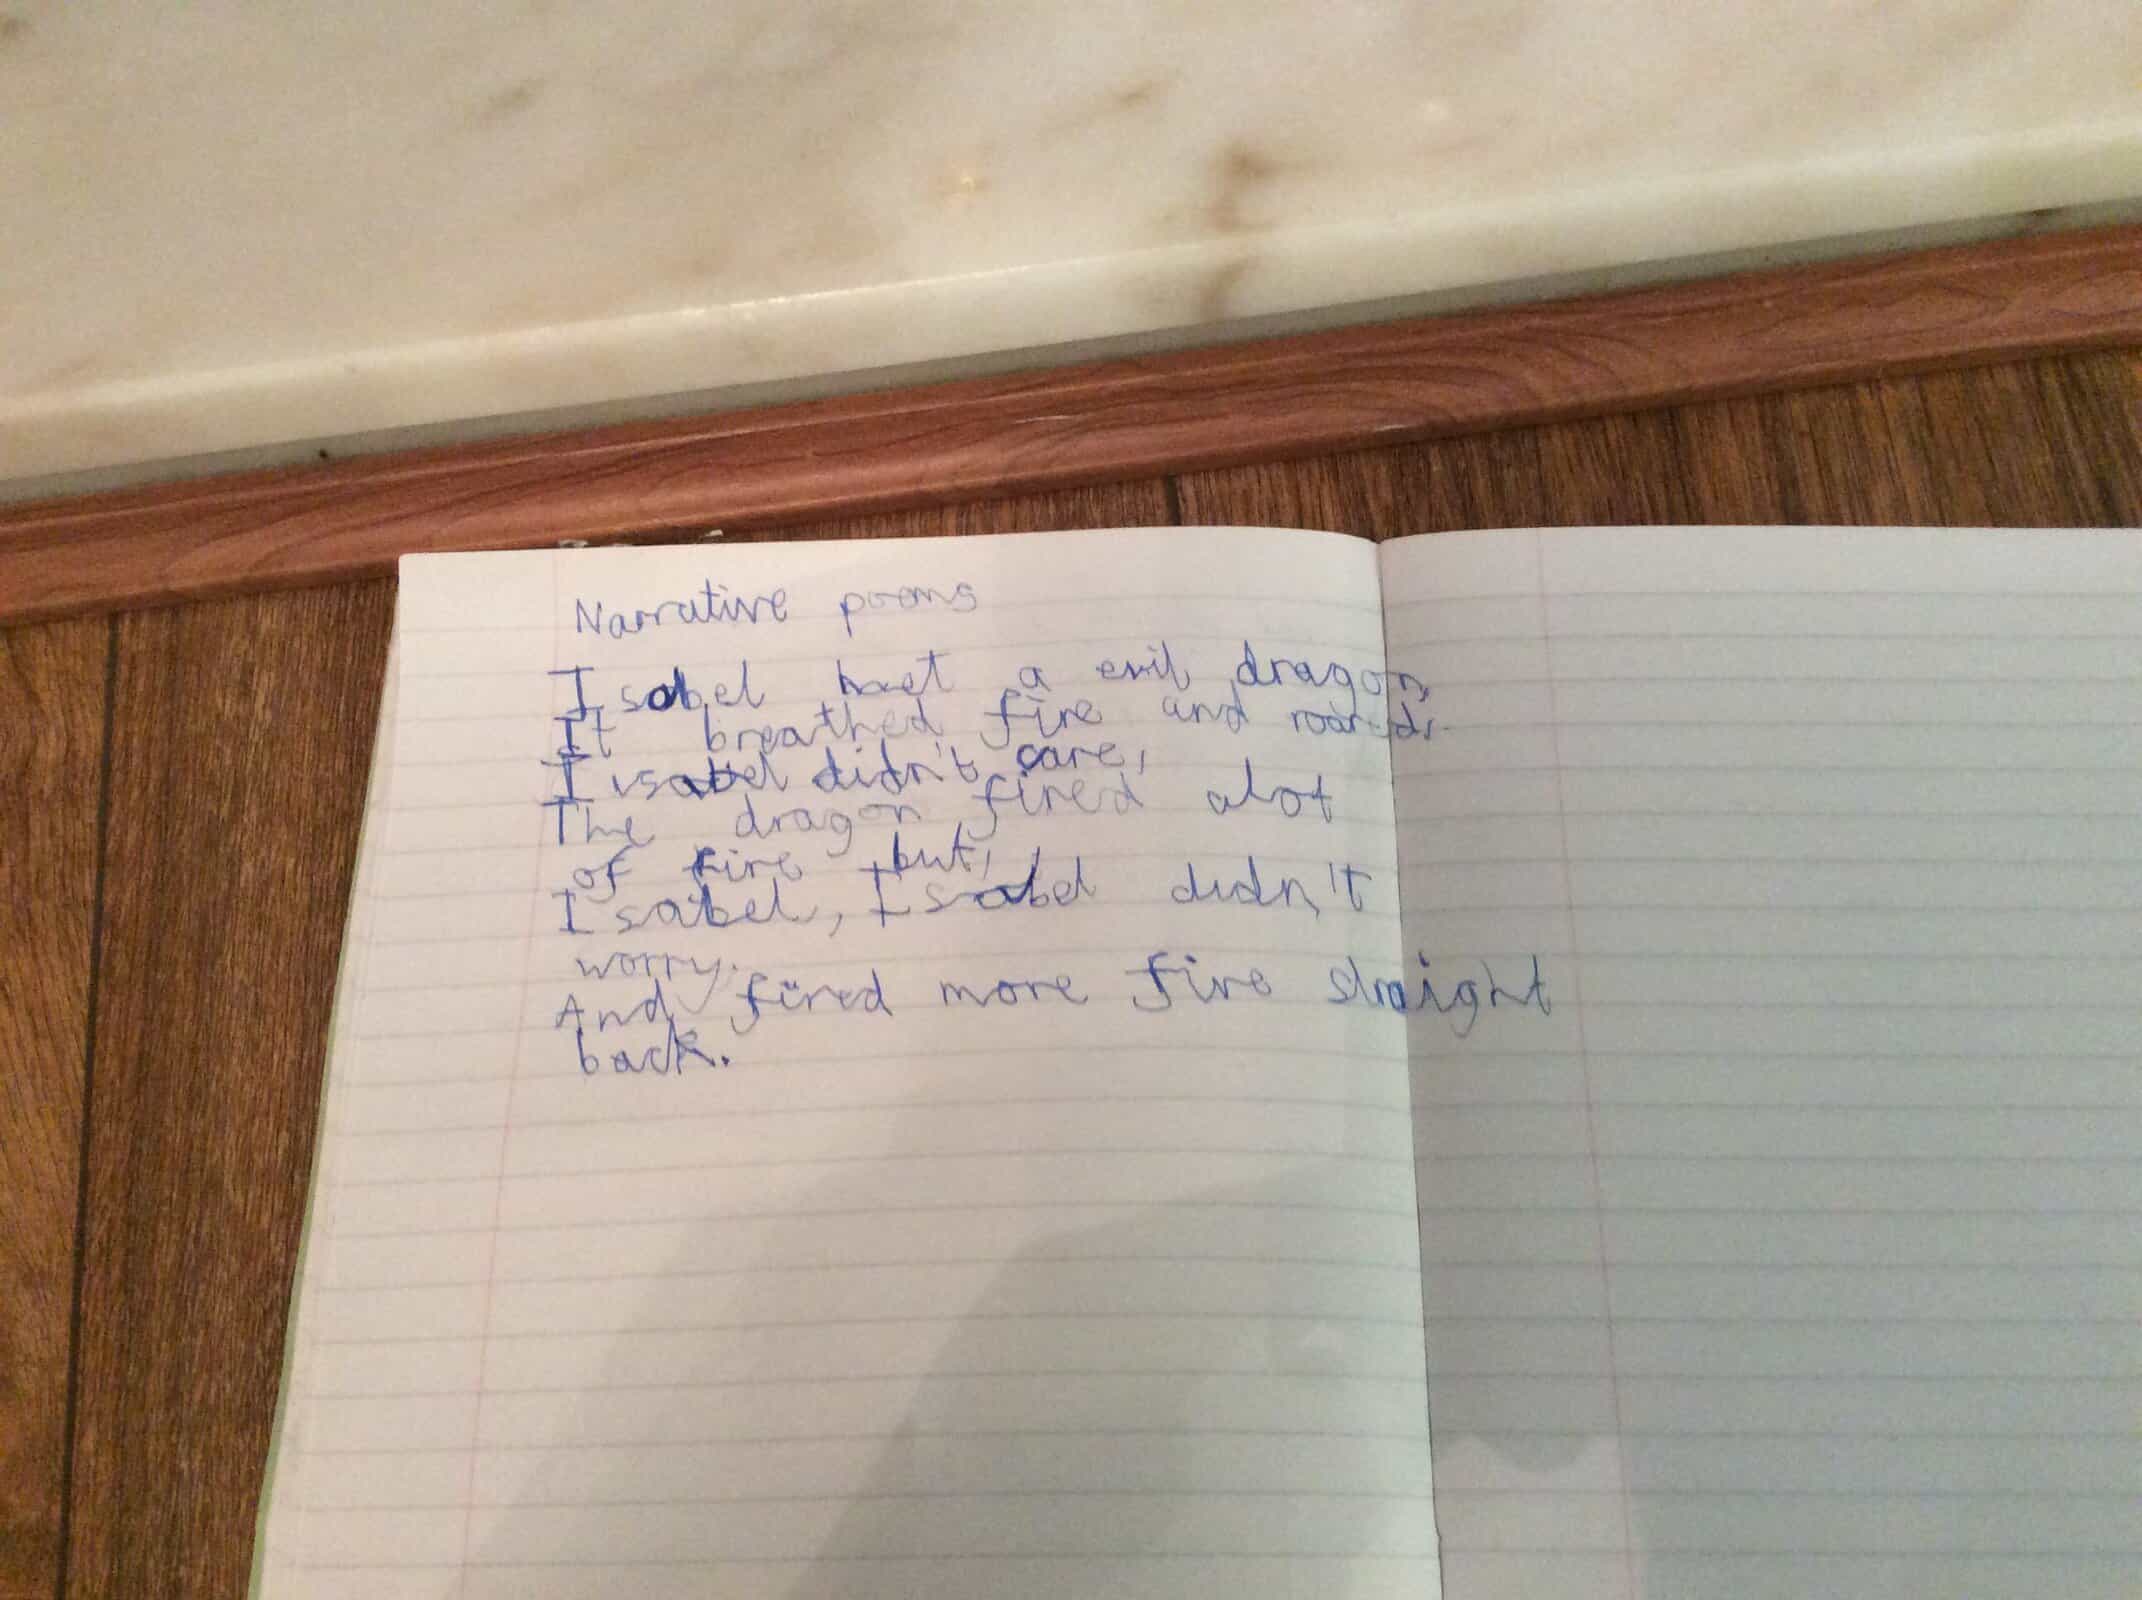 Narrative poems
Isabel met a evil dragon,
It breathed fire and roared.
I isabel didn't care,
The dragon fired alot
of fire but,
Isabel, Isabel didn't
worry.
And fired more fire straight
back.